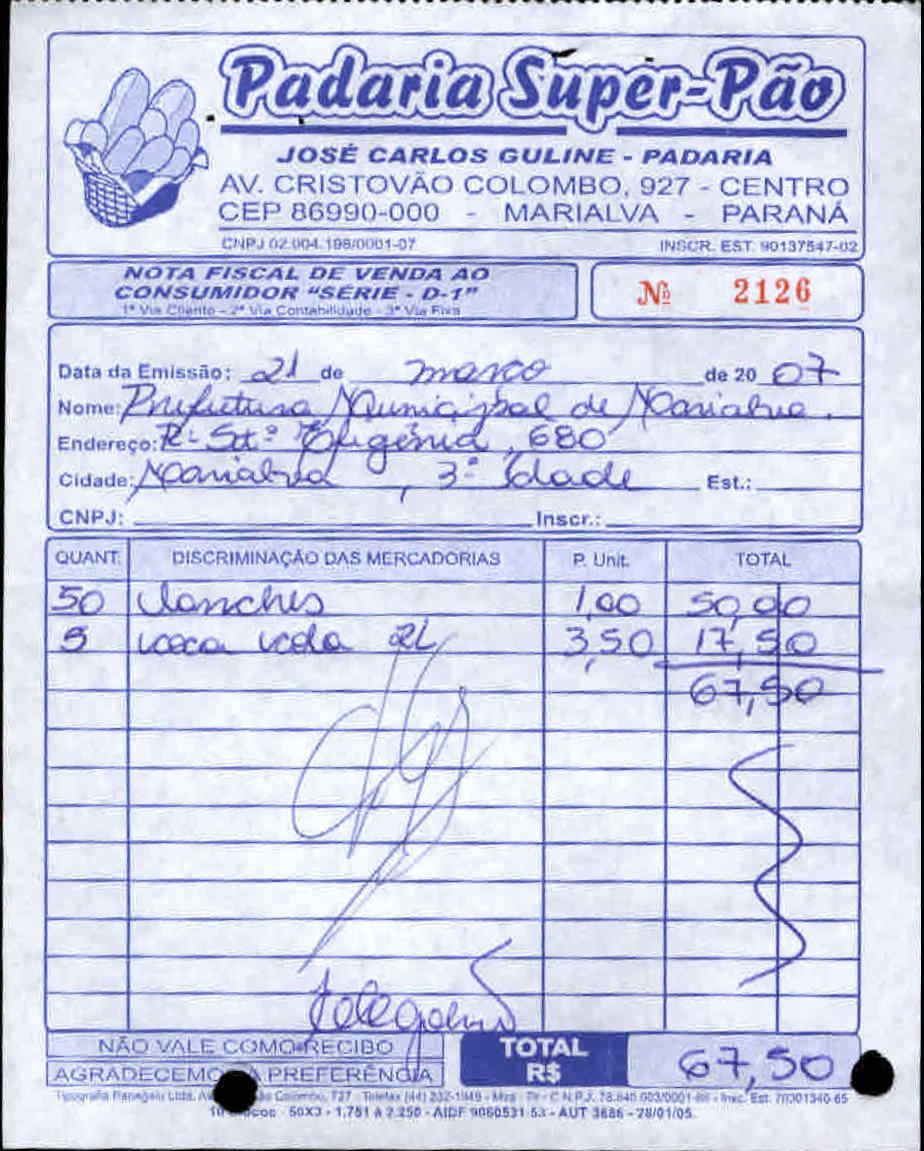 Padaria Super-Pão
JOSÉ CARLOS GULINE - PADARIA
AV. CRISTOVÃO COLOMBO, 927 - CENTRO
CEP 86990-000 - MARIALVA - PARANÁ
CNPJ 02.004.198/0001-07 INSCR. EST. 90137547-02
NOTA FISCAL DE VENDA AO
CONSUMIDOR "SÉRIE - D-1"
1ª Via Cliente - 2ª Via Contabilidade - 3ª Via Fixa
Nº 2126
Data da Emissão: 21 de março de 20 07
Nome: Prefeitura Municipal de Marialva.
Endereço: R- Stª Efigênia, 680
Cidade: Marialva, 3ª Idade Est.:
CNPJ: Inscr.:
QUANT. DISCRIMINAÇÃO DAS MERCADORIAS P. Unit. TOTAL
50 lanches 1,00 50,00
5 coca cola 2L 3,50 17,50
67,50
NÃO VALE COMO RECIBO
AGRADECEMOS A PREFERÊNCIA
TOTAL
R$ 67,50
Tipografia Ltda. Colombo, 727 - Telefax (44) 232-1849 - C.N.P.J.
50X3 - 1.751 à 2.250 - AIDF 9060531-53 - AUT 3686 - 28/01/05